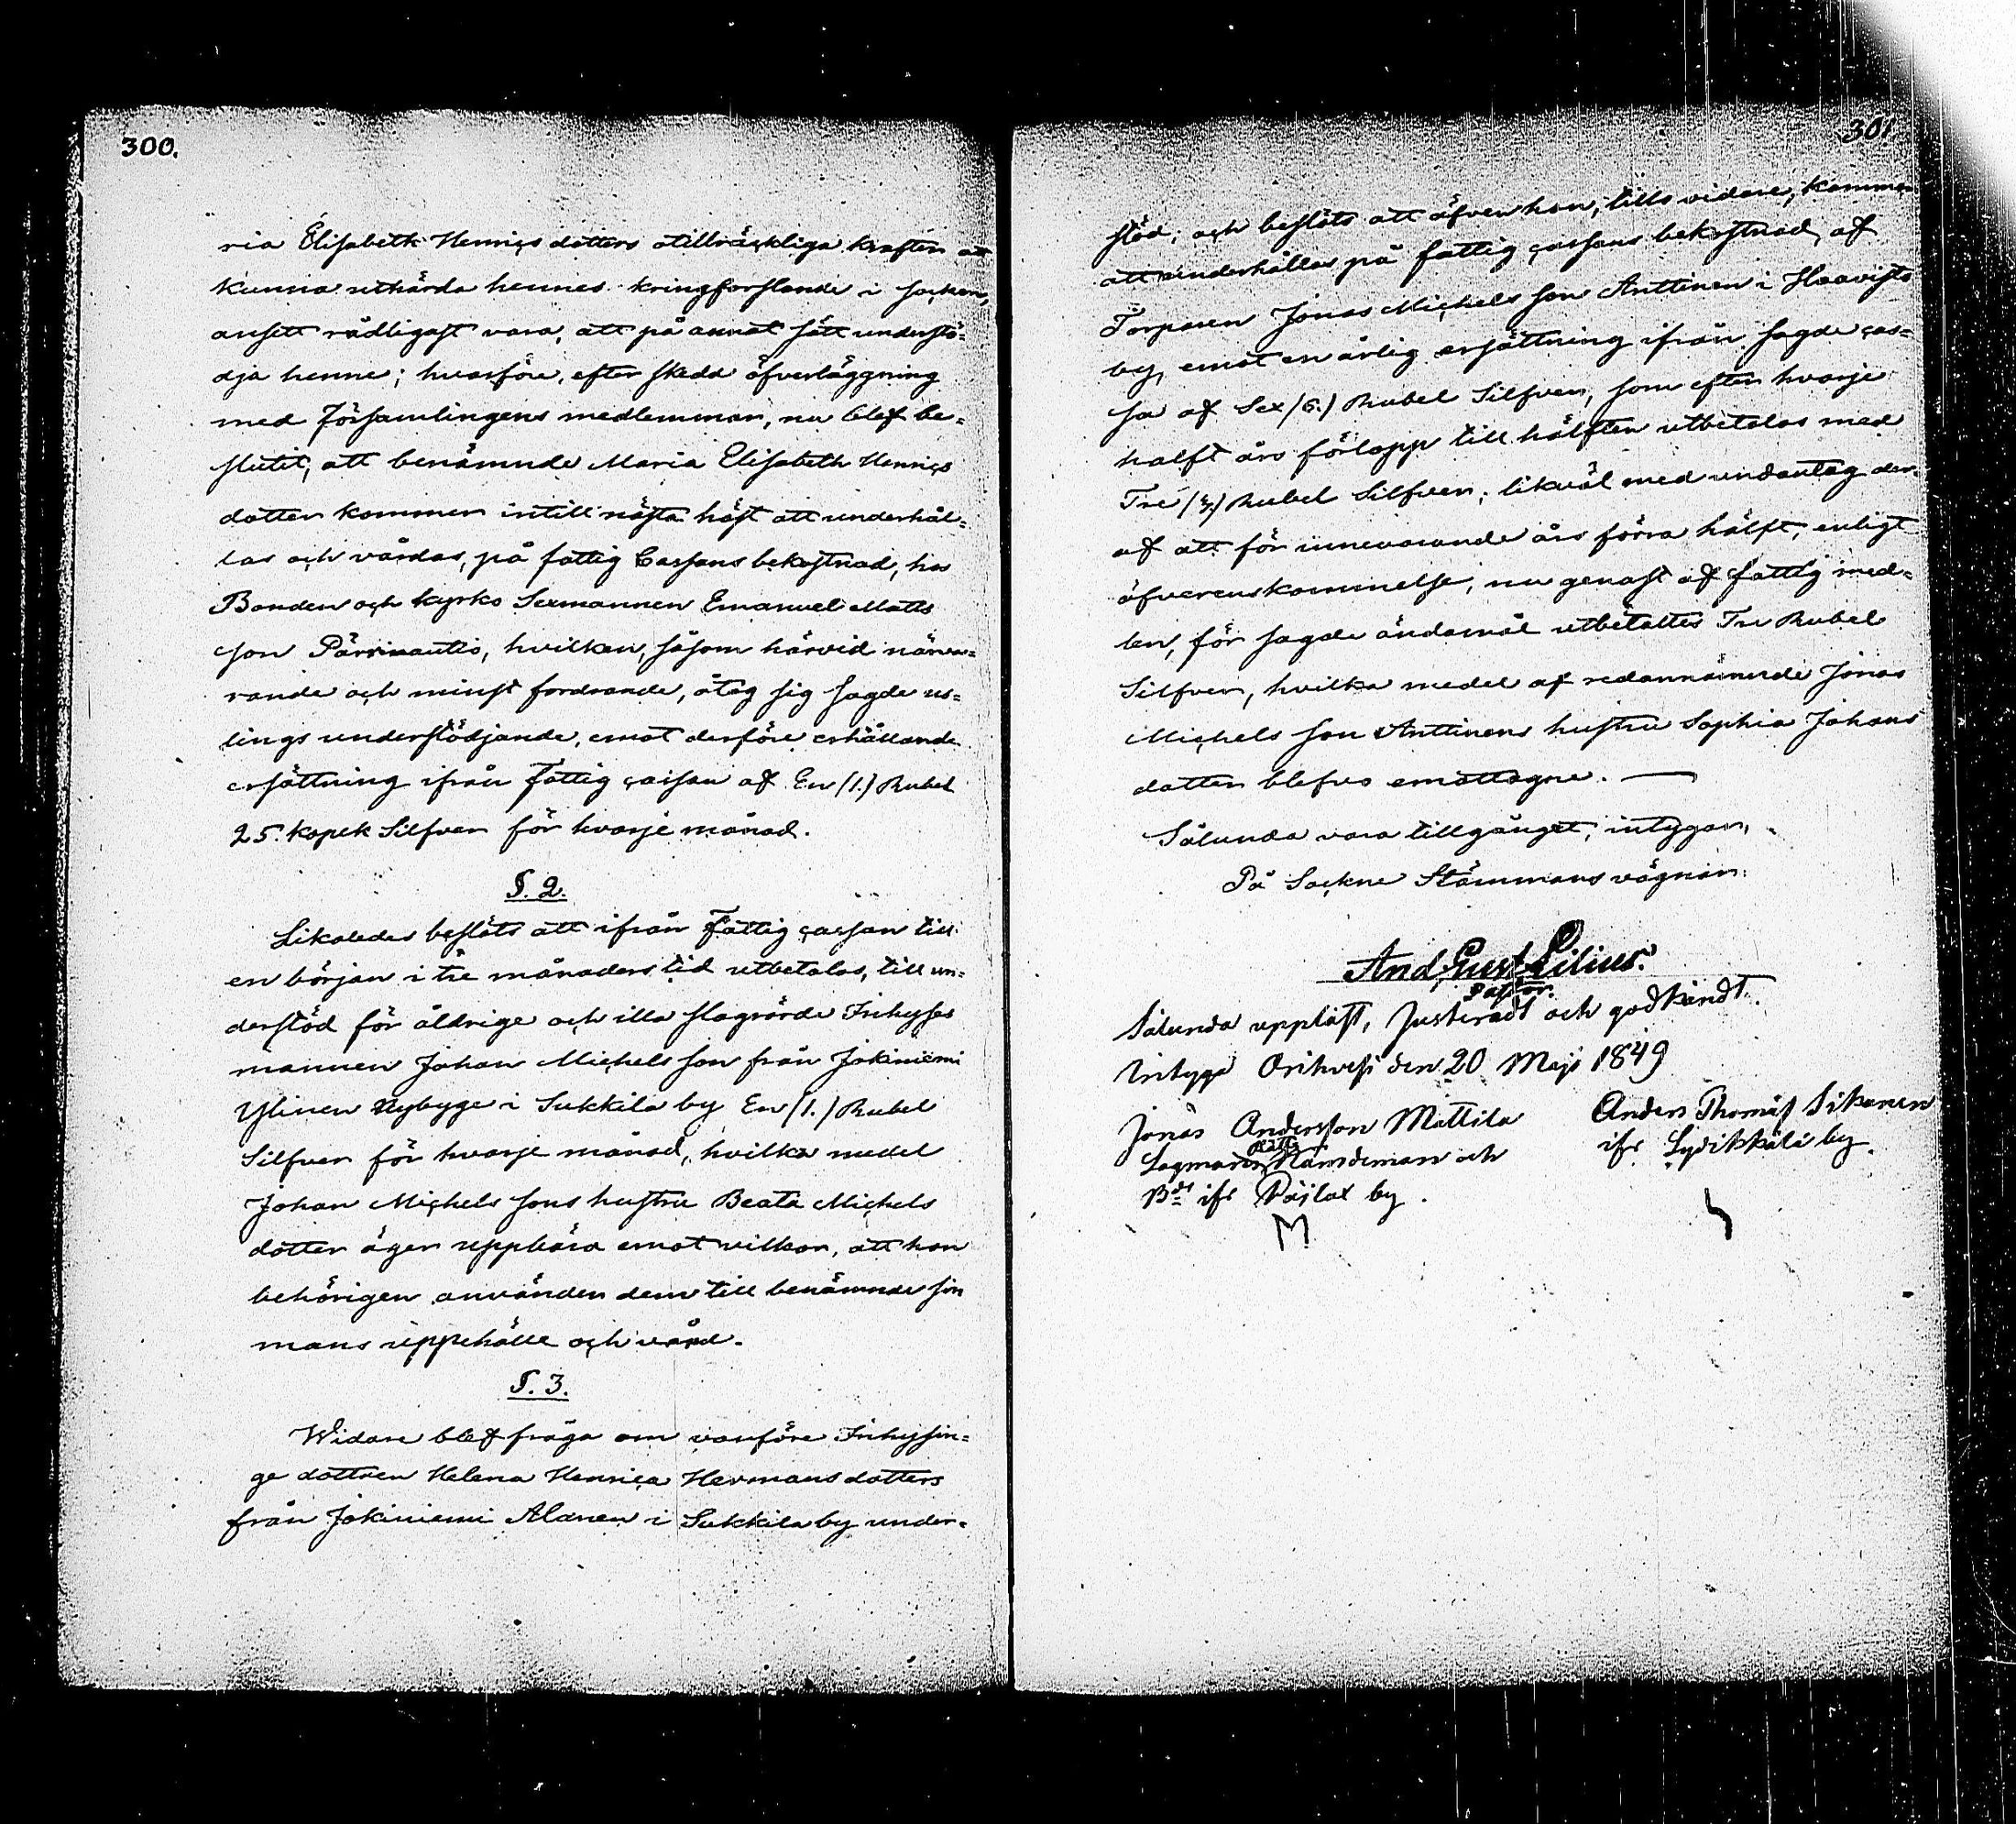 300.
ria Elisabeth Henriçs dotters otillräckliga krafter att
kunna uthärda hennes kringforslande i socken,
ansett rådligast vara, att på annat sätt understö=
dja henne; hvarföre, efter skedd öfverläggning
med församlingens medlemmar, nu blef be=
slutit, att benämnde Maria Elisabeth Henriçs
dotter kommer intill nästa höst att underhål=
las och vårdas, på fattig Cassans bekostnad, hos
Bonden och kyrko Sexmannen Emanuel Matts
son Pärrinautio, hvilken, såsom härvid närva=
rande och minst fordrande, åtog sig sagde us=
lings understödjande, emot derföre erhållande
ersättning ifrån fattig cassan af En (1.) Rubel
25. kopek Silfver för hvarje månad.
§. 2.
Likaledes beslöts att ifrån Fattig cassan till
en början i tre månaders tid utbetalas, till un=
derstöd för åldrige och illa slagrörde Inhyses
mannen Johan Michels son från Jokiniemi
Ylinen Nybygge i Sukkila by En (1.) Rubel
Silfver för hvarje månad, hvilka medel
Johan Michels sons hustru Beata Michels
dotter äger uppbära emot vilkor, att hon
behörigen använder dem till benämnde sin
mans uppehälle och vård.
§. 3.
Widare blef fråga om vanföre Inhysin=
ge dottren Helena Henrica Hermans dotters
från Jokiniemi Alanen i Sukkila by under=
301
stöd; och beslöts att äfven hon, tills vidare, kommer
att underhållas på fattig cassans bekostnad, af
Torparen Jonas Michels son Anttinen i Haavisto
by, emot en årlig ersättning ifrån sagde cas=
sa af Sex (6.) Rubel Silfver, som efter hvarje
halft års förlopp till hälften utbetalas med
Tre (3.) Rubel Silfver; likväl med undantag der=
af att för innevarande års förra hälft, enligt
öfverenskommelse, nu genast af fattig med=
len, för sagde ändamål utbetaltes Tre Rubel
Silfver, hvilka medel af redannämnde Jonas
Michels son Anttinens hustru Sophia Johans
dotter blefvo emottagne. —
Sålunda vara tillgånget, intygar,
På Sockne Stämmans vägnar:
And. Gust. Lilius.
Pastor.
Sålunda uppläst, Justeradt och godkändt.
Intyga Orihvesi den 20 Maji 1849
Jonas Andersson Mattila
Lagmans rätts Nämdeman och
Bde ifr Päjlax by.
M
Anders Thomæs Sikanen
ifr Lydikkälä by.